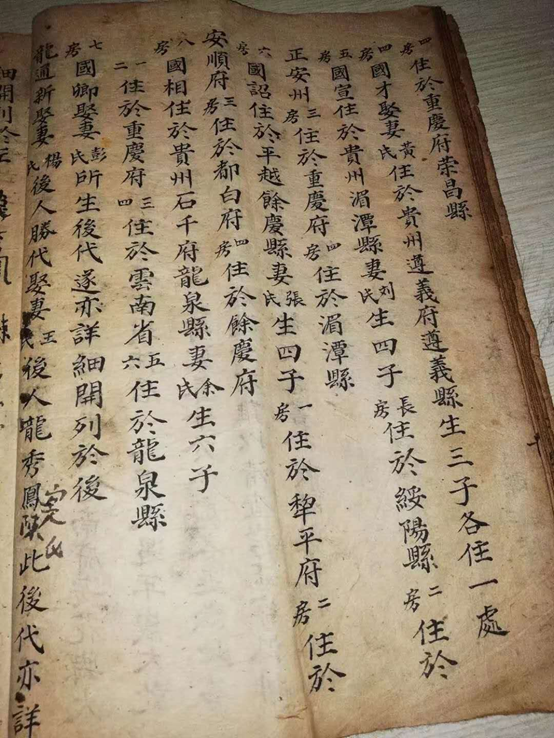 四房住於重慶府荣昌縣
四房國才娶妻黃氏住於貴州遵義府遵義縣生三子各住一處
五房國宣住於貴州湄潭縣妻刘氏生四子長房住於綏陽縣二房住於
正安州三房住於重慶府四房住於湄潭縣
六房國詔住於平越餘慶縣妻張氏生四子一房住於犁平府二房住於
安順府三房住於都白府四房住於餘慶府
八房國相住於貴州石千府龍泉縣妻余氏生六子
一二住於重慶府三四住於雲南省五六住於龍泉縣
七房國卿娶妻彭氏所生後代遂亦詳細開列於後
龍通新娶妻楊氏後人勝代娶妻王氏後人龍秀鳳此後代亦詳
細開列於